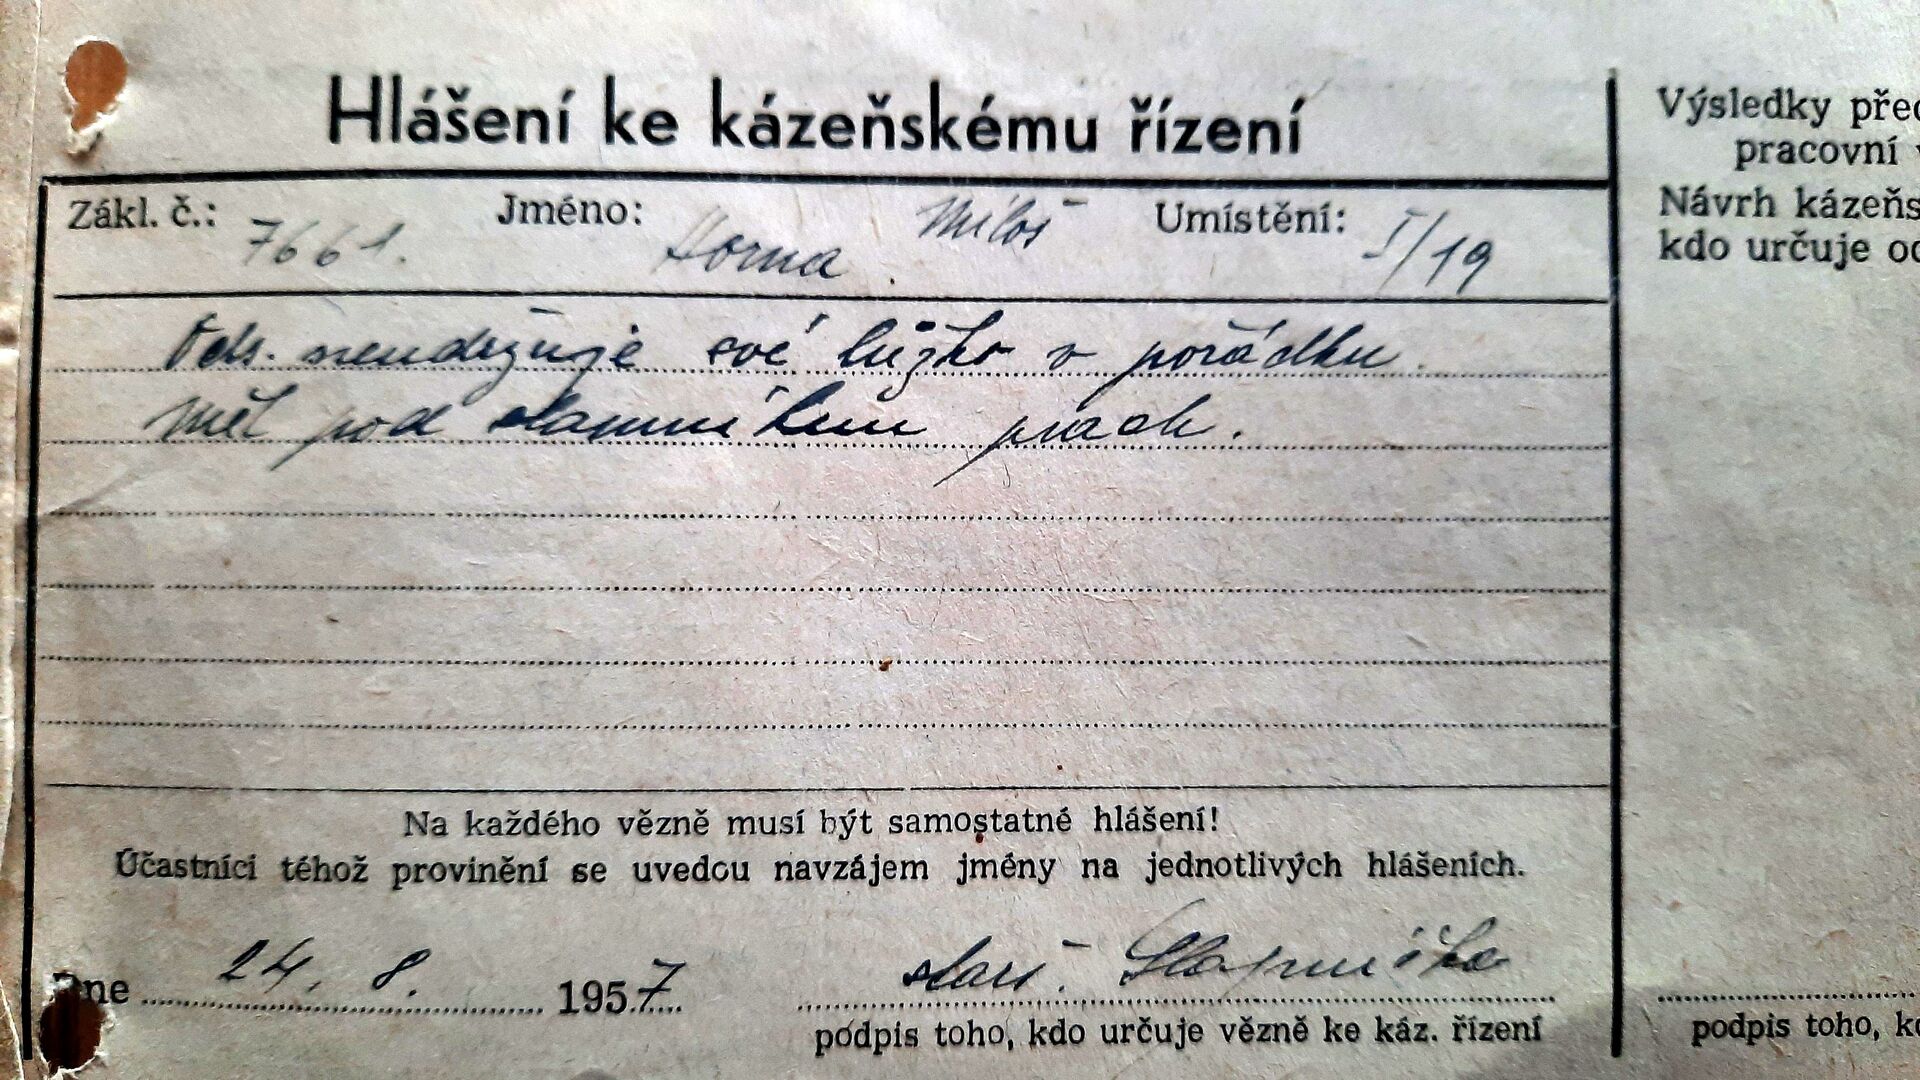 Hlášení ke kázeňskému řízení
Zákl. č.: 7661. Jméno: Horna Miloš Umístění: I/19
Ods. neudržuje své lůžko v pořádku.
Měl pod slamníkem prach.
Na každého vězně musí být samostatné hlášení!
Účastníci téhož provinění se uvedou navzájem jmény na jednotlivých hlášeních.
Dne 24. 8. 1957
podpis toho, kdo určuje vězně ke káz. řízení
Výsledky před
pracovní v
Návrh kázeňs
kdo určuje od
podpis toho, kd